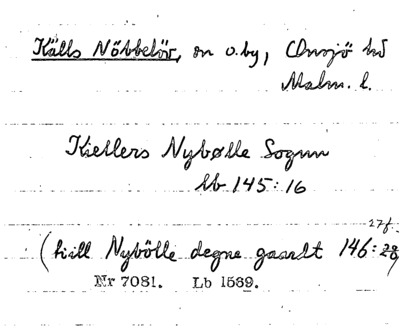 Källs Nöbbelöv, sn o. by, Onsjö hd
Malm. l.
Kiellers Nybølle Sognn
lb 145:16
27f.
(kiell Nybölle degne gaardt 146:28)
Nr 7081. Lb 1539.